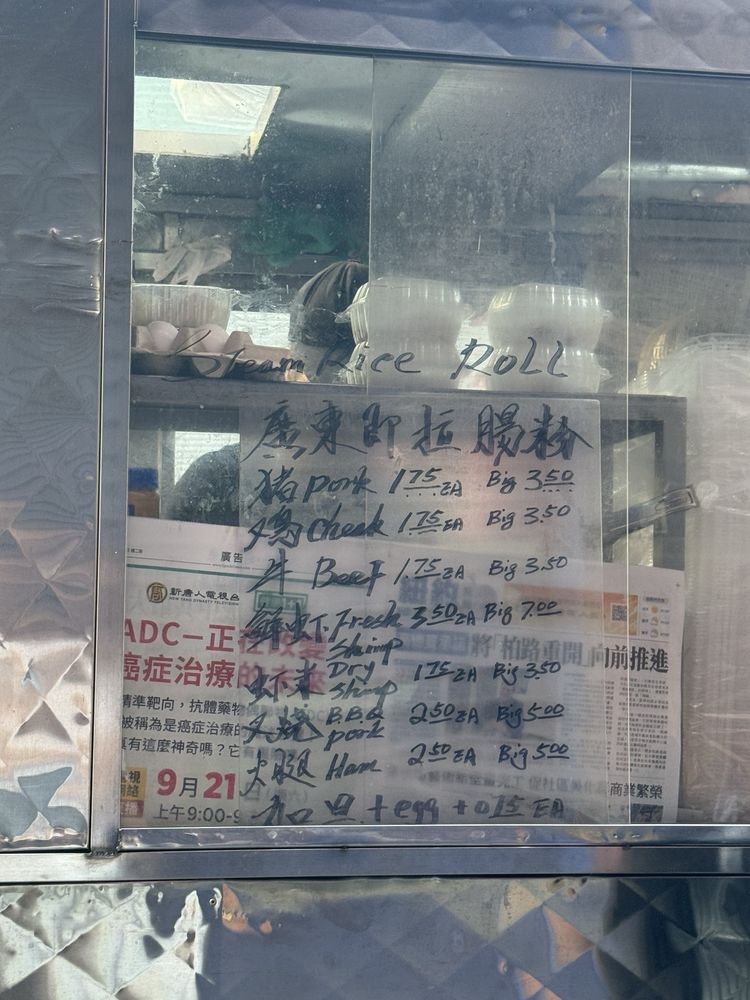 Steam Rice Roll
廣東即拉腸粉
猪 Pork 1.75 EA Big 3.50
鸡 Cheek 1.75 EA Big 3.50
牛 Beef 1.75 EA Big 3.50
鲜虾 Fresh Shimp 3.50 EA Big 7.00
虾米 Dry Shimp 1.75 EA Big 3.50
叉烧 B.B.Q pork 2.50 EA Big 5.00
火腿 Ham 2.50 EA Big 5.00
加旦 + egg + 0.75 EA
廣告
新唐人電視台
NEW TANG DYNASTY TELEVISION
ADC—正在改變
癌症治療的未來
精準靶向，抗體藥物
被稱為是癌症治療的
真有這麼神奇嗎？它
9月21
上午9:00-9
將「柏路重開」向前推進
商業繁榮